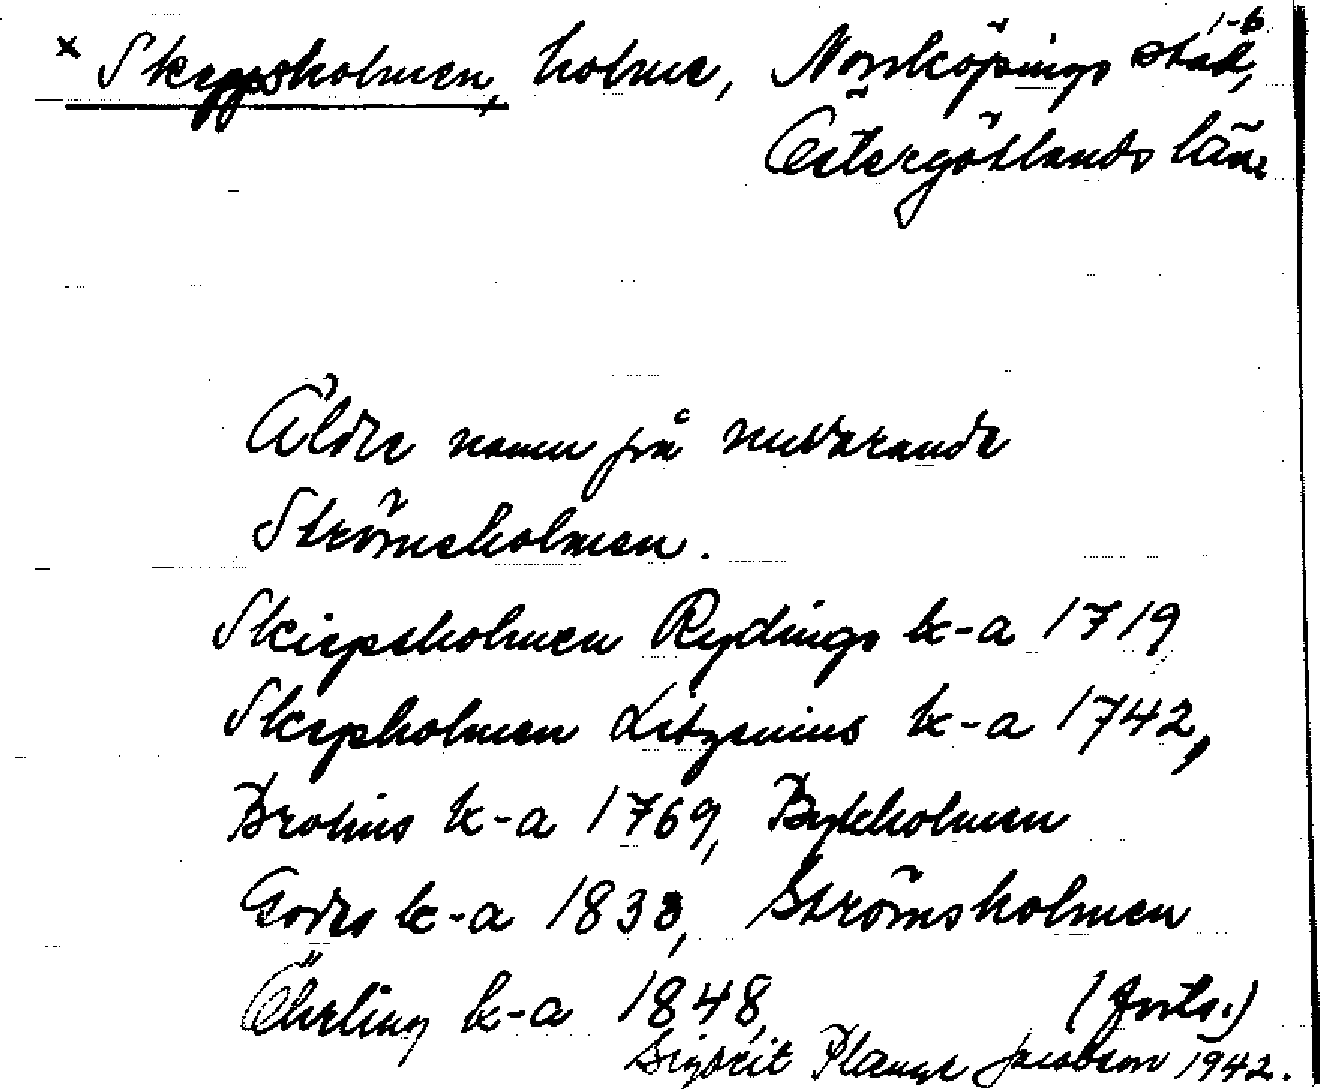 1-6
× Skeppsholmen, holme, Norrköpings stad,
Östergötlands län.
Äldre namn på nuvarande
Strömsholmen.
Skiepsholmen Rydings k-a 1719
Skepsholmen Litzenius k-a 1742,
Brolins k-a 1769, Bykholmen
Godes k-a 1833, Strömsholmen
Öhrling k-a 1848, (forts.)
Sigbrit Plænge Jacobson 1942.